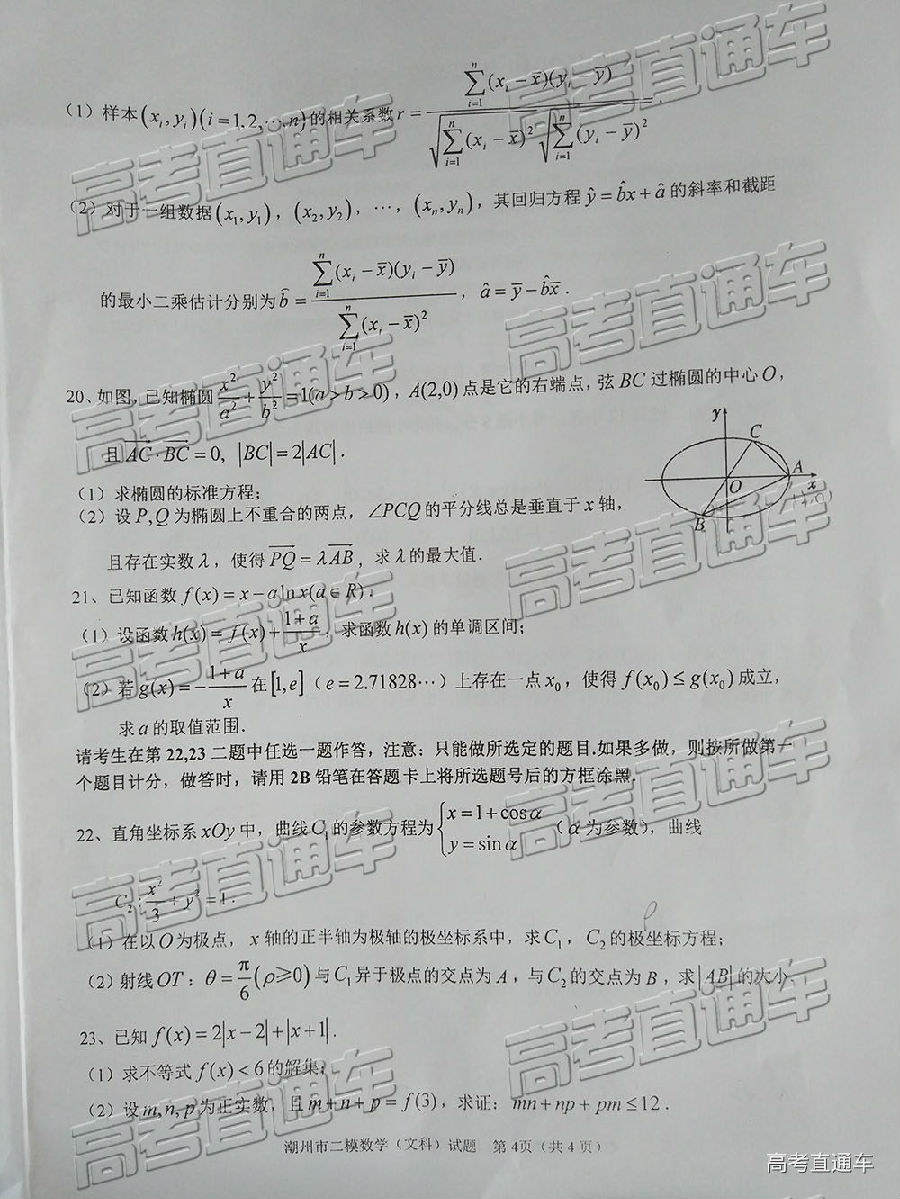 (1) 样本(x_i, y_i)(i=1,2,…,n)的相关系数 r = \frac{\sum_{i=1}^{n}(x_i-\bar{x})(y_i-\bar{y})}{\sqrt{\sum_{i=1}^{n}(x_i-\bar{x})^2}\sqrt{\sum_{i=1}^{n}(y_i-\bar{y})^2}}.
(2) 对于一组数据(x_1,y_1),(x_2,y_2),…,(x_n,y_n),其回归方程 \hat{y}=\hat{b}x+\hat{a} 的斜率和截距
的最小二乘估计分别为 \hat{b} = \frac{\sum_{i=1}^{n}(x_i-\bar{x})(y_i-\bar{y})}{\sum_{i=1}^{n}(x_i-\bar{x})^2}, \hat{a}=\bar{y}-\hat{b}\bar{x}.
20、如图,已知椭圆 \frac{x^2}{a^2}+\frac{y^2}{b^2}=1(a>b>0),A(2,0)点是它的右端点,弦BC过椭圆的中心O,
且 \overrightarrow{AC}·\overrightarrow{BC}=0, |BC|=2|AC|.
y C A O x B
(1) 求椭圆的标准方程;
(2) 设P,Q为椭圆上不重合的两点,∠PCQ的平分线总是垂直于x轴,
且存在实数λ,使得 \overrightarrow{PQ}=λ\overrightarrow{AB},求λ的最大值.
21、已知函数 f(x)=x-a ln x(a∈R).
(1) 设函数 h(x)=f(x)+\frac{1+a}{x},求函数h(x)的单调区间;
(2) 若 g(x)=-\frac{1+a}{x} 在[1,e](e=2.71828…)上存在一点x_0,使得 f(x_0)≤g(x_0)成立,
求a的取值范围.
请考生在第22,23二题中任选一题作答,注意:只能做所选定的题目.如果多做,则按所做第一
个题目计分,做答时,请用2B铅笔在答题卡上将所选题号后的方框涂黑.
22、直角坐标系xOy中,曲线C_1的参数方程为 \begin{cases}x=1+cosα\\y=sinα\end{cases}(α为参数),曲线
C_2: \frac{x^2}{3}+y^2=1.
(1) 在以O为极点,x轴的正半轴为极轴的极坐标系中,求C_1,C_2的极坐标方程;
(2) 射线OT:θ=\frac{π}{6}(ρ≥0)与C_1异于极点的交点为A,与C_2的交点为B,求|AB|的大小.
23、已知 f(x)=2|x-2|+|x+1|.
(1) 求不等式 f(x)<6的解集;
(2) 设m,n,p为正实数,且m+n+p=f(3),求证:mn+np+pm≤12.
潮州市二模数学(文科)试题 第4页(共4页)
高考直通车